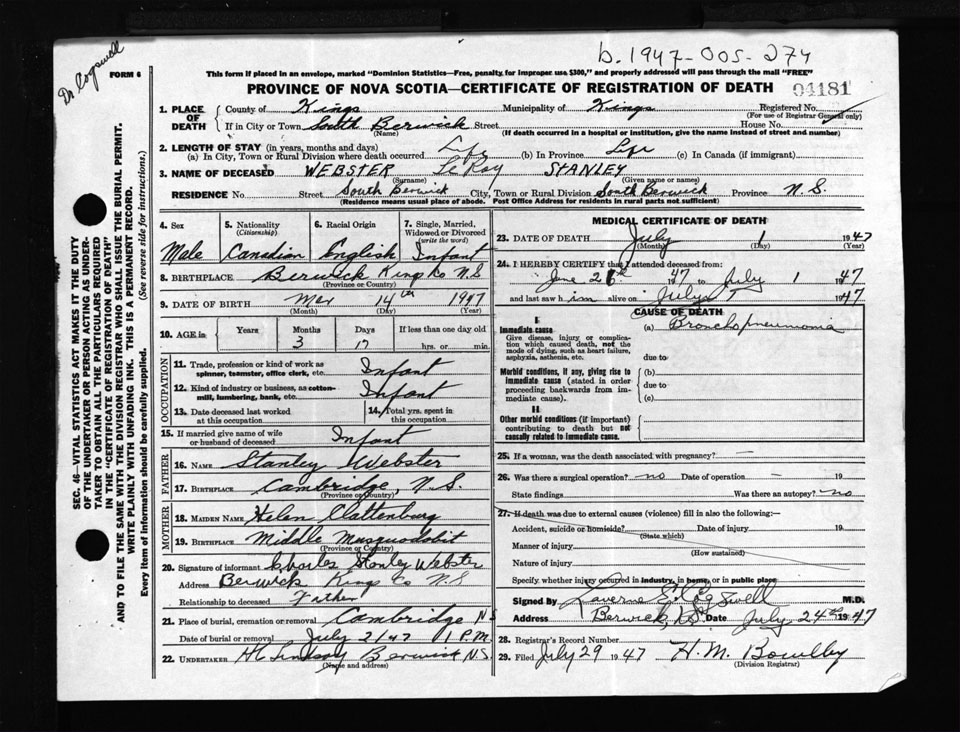 b. 1947-005-274
Dr Cogswell
FORM 6
This form if placed in an envelope, marked "Dominion Statistics—Free, penalty for improper use $300," and properly addressed will pass through the mail "FREE"
PROVINCE OF NOVA SCOTIA—CERTIFICATE OF REGISTRATION OF DEATH
04181
SEC. 46—VITAL STATISTICS ACT MAKES IT THE DUTY
OF THE UNDERTAKER OR PERSON ACTING AS UNDER-
TAKER TO OBTAIN ALL THE PARTICULARS REQUIRED
IN THE "CERTIFICATE OF REGISTRATION OF DEATH"
AND TO FILE THE SAME WITH THE DIVISION REGISTRAR WHO SHALL ISSUE THE BURIAL PERMIT.
WRITE PLAINLY WITH UNFADING INK. THIS IS A PERMANENT RECORD.
Every item of information should be carefully supplied. (See reverse side for instructions.)
1. PLACE OF DEATH County of Kings Municipality of Kings Registered No.
(For use of Registrar General only)
If in City or Town South Berwick Street House No.
(Name) (If death occurred in a hospital or institution, give the name instead of street and number)
2. LENGTH OF STAY (in years, months and days)
(a) In City, Town or Rural Division where death occurred Life (b) In Province Life (c) In Canada (if immigrant)
3. NAME OF DECEASED WEBSTER LeRoy STANLEY
(Surname) (Given name or names)
RESIDENCE No. Street South Berwick City, Town or Rural Division South Berwick Province N.S.
(Residence means usual place of abode. Post Office Address for residents in rural parts not sufficient)
4. Sex 5. Nationality (Citizenship) 6. Racial Origin 7. Single, Married, Widowed or Divorced (write the word)
Male Canadian English Infant
8. BIRTHPLACE Berwick Kings Co N.S
(Province or Country)
9. DATE OF BIRTH Mar 14th 1947
(Month) (Day) (Year)
10. AGE in Years Months Days If less than one day old
3 17 hrs. or min.
OCCUPATION
11. Trade, profession or kind of work as spinner, teamster, office clerk, etc. Infant
12. Kind of industry or business, as cotton-mill, lumbering, bank, etc. Infant
13. Date deceased last worked at this occupation 14. Total yrs. spent in this occupation
15. If married give name of wife or husband of deceased Infant
FATHER
16. NAME Stanley Webster
17. BIRTHPLACE Cambridge, N.S.
(Province or Country)
MOTHER
18. MAIDEN NAME Helen Clattenburg
19. BIRTHPLACE Middle Musquodobit
(Province or Country)
20. Signature of informant Charles Stanley Webster
Address Berwick Kings Co N.S
Relationship to deceased Father
21. Place of burial, cremation or removal Cambridge NS
Date of burial or removal July 2/47 1 P.M.
22. UNDERTAKER H Lindsay Berwick N.S.
(Name and address)
MEDICAL CERTIFICATE OF DEATH
23. DATE OF DEATH July 1 1947
(Month) (Day) (Year)
24. I HEREBY CERTIFY that I attended deceased from:
June 26th 47 July 1 1947
and last saw him alive on July 1 1947
CAUSE OF DEATH
I.
Immediate cause (a) Bronchopneumonia
Give disease, injury or complication which caused death, not the mode of dying, such as heart failure, asphyxia, asthenia, etc.
due to
Morbid conditions, if any, giving rise to immediate cause (stated in order proceeding backwards from immediate cause). (b)
due to
(c)
II
Other morbid conditions (if important) contributing to death but not causally related to immediate cause.
25. If a woman, was the death associated with pregnancy? —
26. Was there a surgical operation? no Date of operation — 19
State findings Was there an autopsy? no
27. If death was due to external causes (violence) fill in also the following:—
Accident, suicide or homicide? Date of injury 19
(State which)
Manner of injury
(How sustained)
Nature of injury
Specify whether injury occurred in industry, in home, or in public place
Signed By Laverne E. Cogswell M.D.
Address Berwick, N.S. Date July 24th 1947
28. Registrar's Record Number
29. Filed July 29 1947 H. M. Bowlby
(Division Registrar)